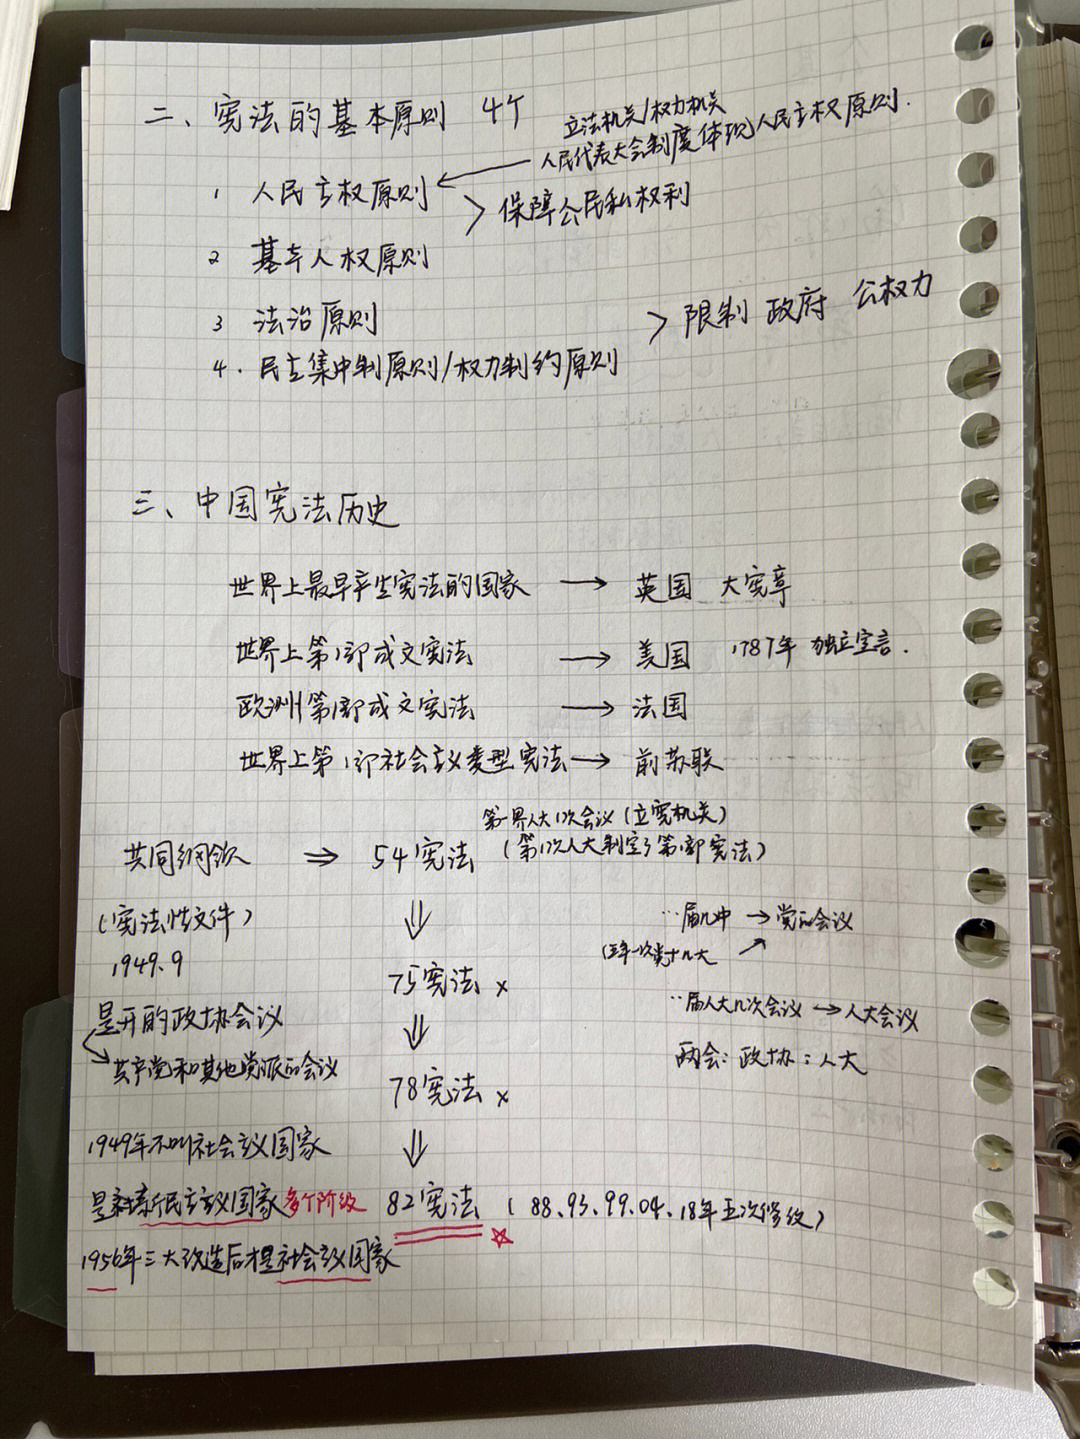 二、宪法的基本原则 4个
立法机关/权力机关
人民代表大会制度体现人民主权原则.
1 人民主权原则
> 保障公民私权利
2 基本人权原则
3 法治原则
> 限制 政府 公权力
4. 民主集中制原则/权力制约原则
三、中国宪法历史
世界上最早产生宪法的国家 → 英国 大宪章
世界上第1部成文宪法 → 美国 1787年 独立宣言.
欧洲第1部成文宪法 → 法国
世界上第1部社会主义类型宪法 → 前苏联
第一届人大1次会议(立宪机关)
共同纲领 ⇒ 54宪法 (第1次人大制定了第1部宪法)
(宪法性文件)
1949.9
…届几中 → 党的会议
75宪法 x
是开的政协会议
…届人大几次会议 → 人大会议
共产党和其他党派的会议
两会:政协;人大
78宪法 x
1949年不叫社会主义国家
新民主主义国家 多个阶级
82宪法 (88.93.99.04.18年五次修改)
1956年三大改造后才是社会主义国家